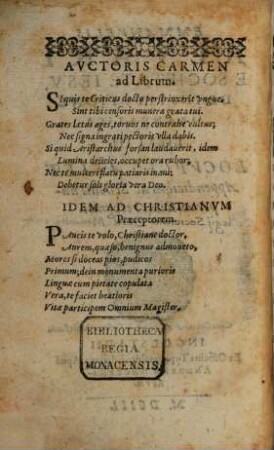 AVCTORIS CARMEN
ad Librum.
SIquis te Criticus docto perstrinxerit vngue,
Sint tibi censoris munera grata tui.
Grates letus ages, toruos ne contrahe vultus;
Nec signa ingrati pectoris vlla dabis.
Si quid Aristarchus forsan laudauerit, idem
Lumina deijcies, occupet ora rubor;
Nec te mulceri flatu patiaris inani;
Debetur soli gloria vera Deo.
IDEM AD CHRISTIANVM
Præceptorem.
PAucis te volo, Christiane doctor,
Aurem, quæso, benignus admoueto,
Mores si doceas pios, pudicos
Primum; dein monumenta purioris
Linguæ cum pietate copulata
Vera, te faciet beatioris
Vitæ participem Omnium Magister.
BIBLIOTHECA
REGIA
MONACENSIS.